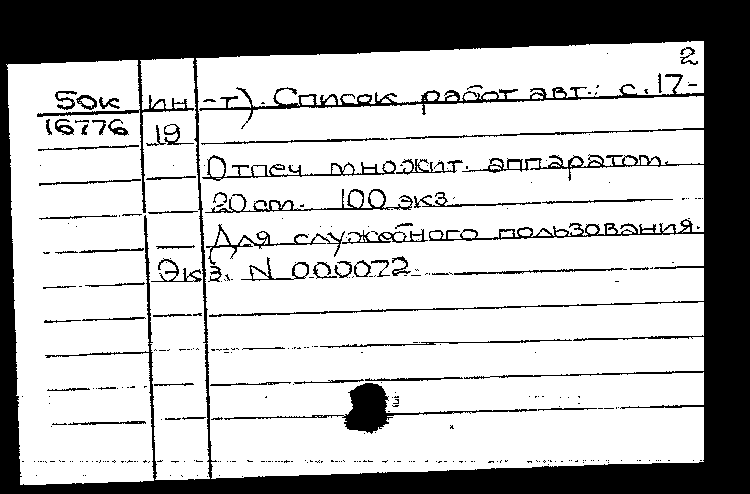 2
50к ин-т). Список работ авт.: с.17-
16776 19
Отпеч. множит. аппаратом.
20 cm. 100 экз.
Для служебного пользования.
Экз. N 000072.